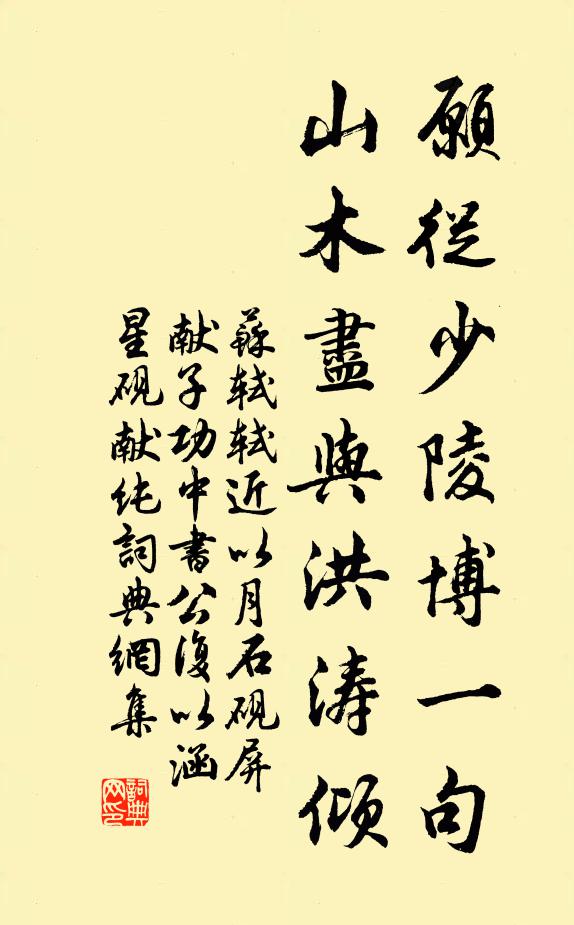 願從少陵博一句
山木盡與洪濤傾
蘇軾軾近以月石硯屏
献子功中書公復以涵
星硯献純詞典網集
詞典網印